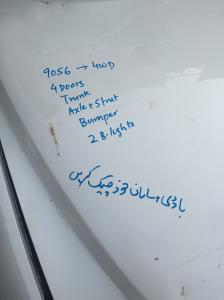 9056 → 4WD
4 Doors
Trunk
Axle + Strut
Bumper
2 B. lights
باڈی و سامان خود چیک کریں